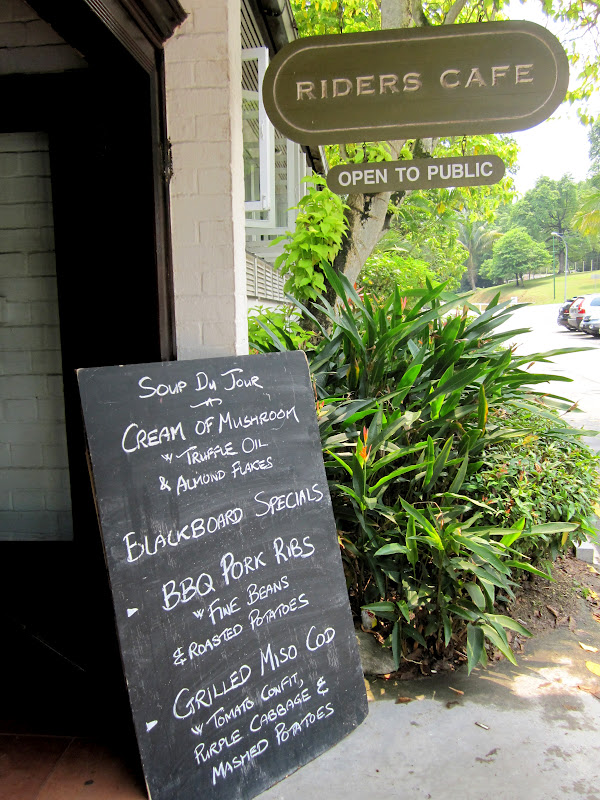 RIDERS CAFE
OPEN TO PUBLIC
SOUP DU JOUR
CREAM OF MUSHROOM
W TRUFFLE OIL
& ALMOND FLAKES
BLACKBOARD SPECIALS
BBQ PORK RIBS
W FINE BEANS
& ROASTED POTATOES
GRILLED MISO COD
W TOMATO CONFIT,
PURPLE CABBAGE &
MASHED POTATOES